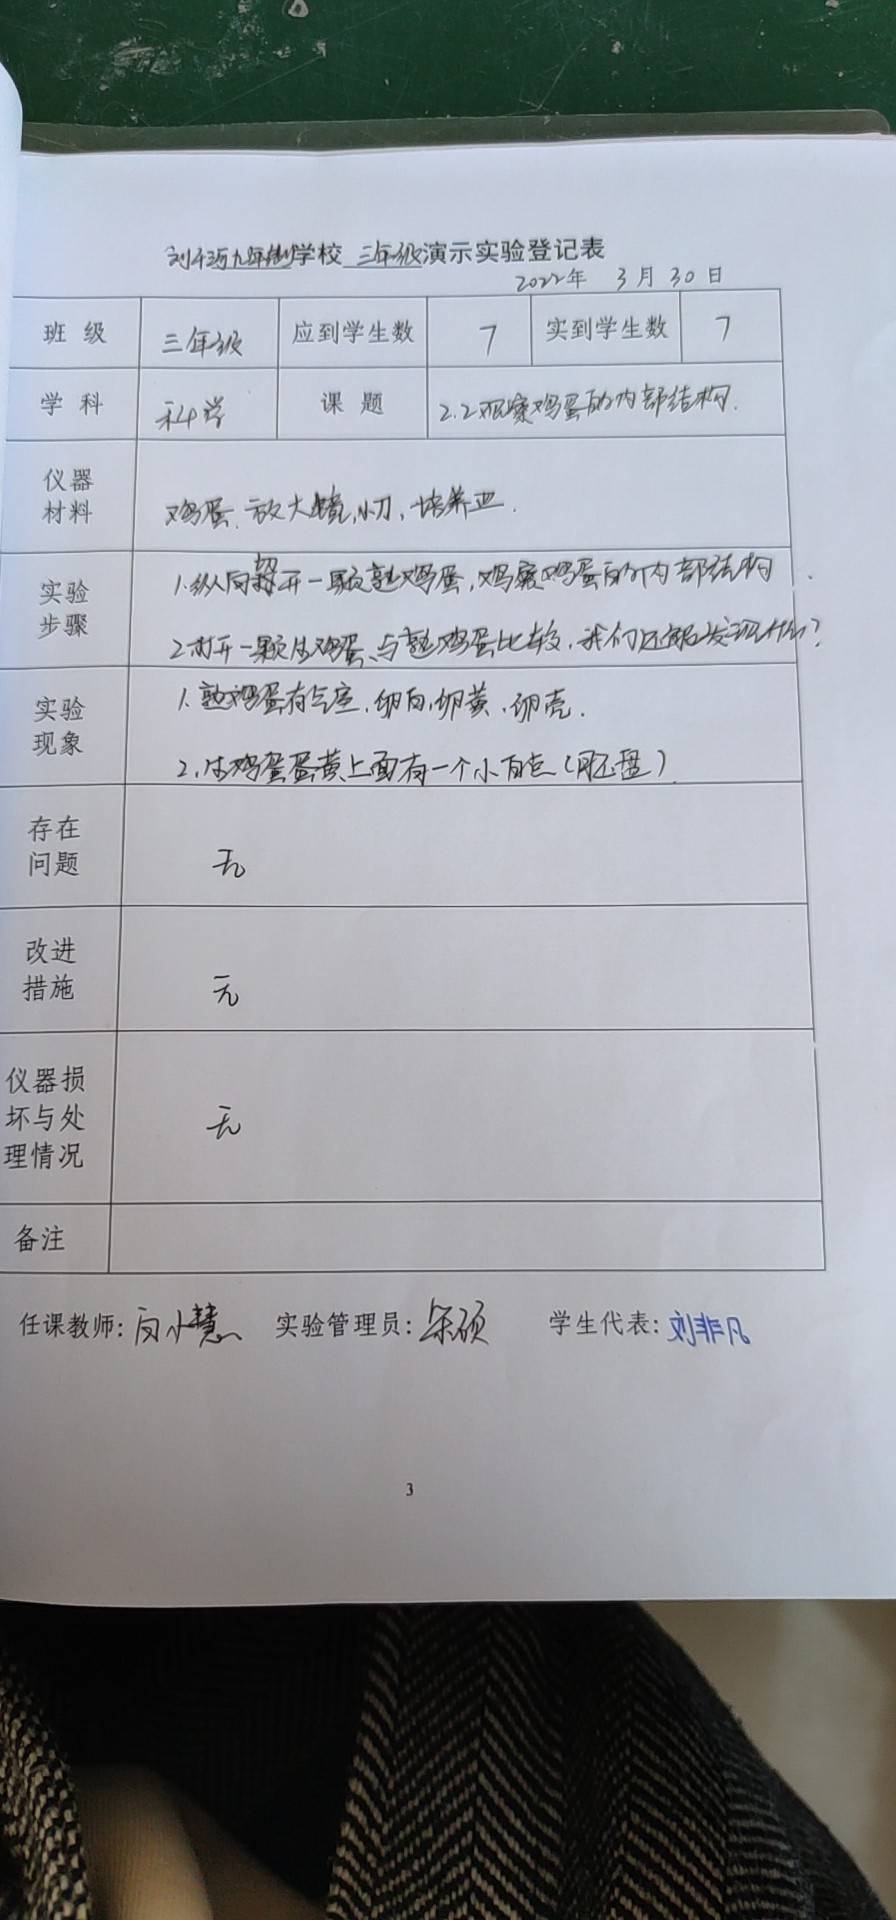 九年制学校 三年级演示实验登记表
2022年 3月30日
班级 三年级 应到学生数 7 实到学生数 7
学科 科学 课题 2.2观察鸡蛋的内部结构.
仪器
材料
鸡蛋、放大镜,小刀、培养皿.
实验
步骤
1.纵向 开一颗熟鸡蛋,鸡察鸡蛋的内部结构.
2.打开一颗生鸡蛋、与熟鸡蛋比较,我们还能发现什么?
实验
现象
1.熟鸡蛋有气室,卵白,卵黄、卵壳.
2.生鸡蛋蛋黄上面有一个小白点(胚盘)
存在
问题
无
改进
措施
无
仪器损
坏与处
理情况
无
备注
任课教师: 小慧 实验管理员: 硕 学生代表:刘非凡
3